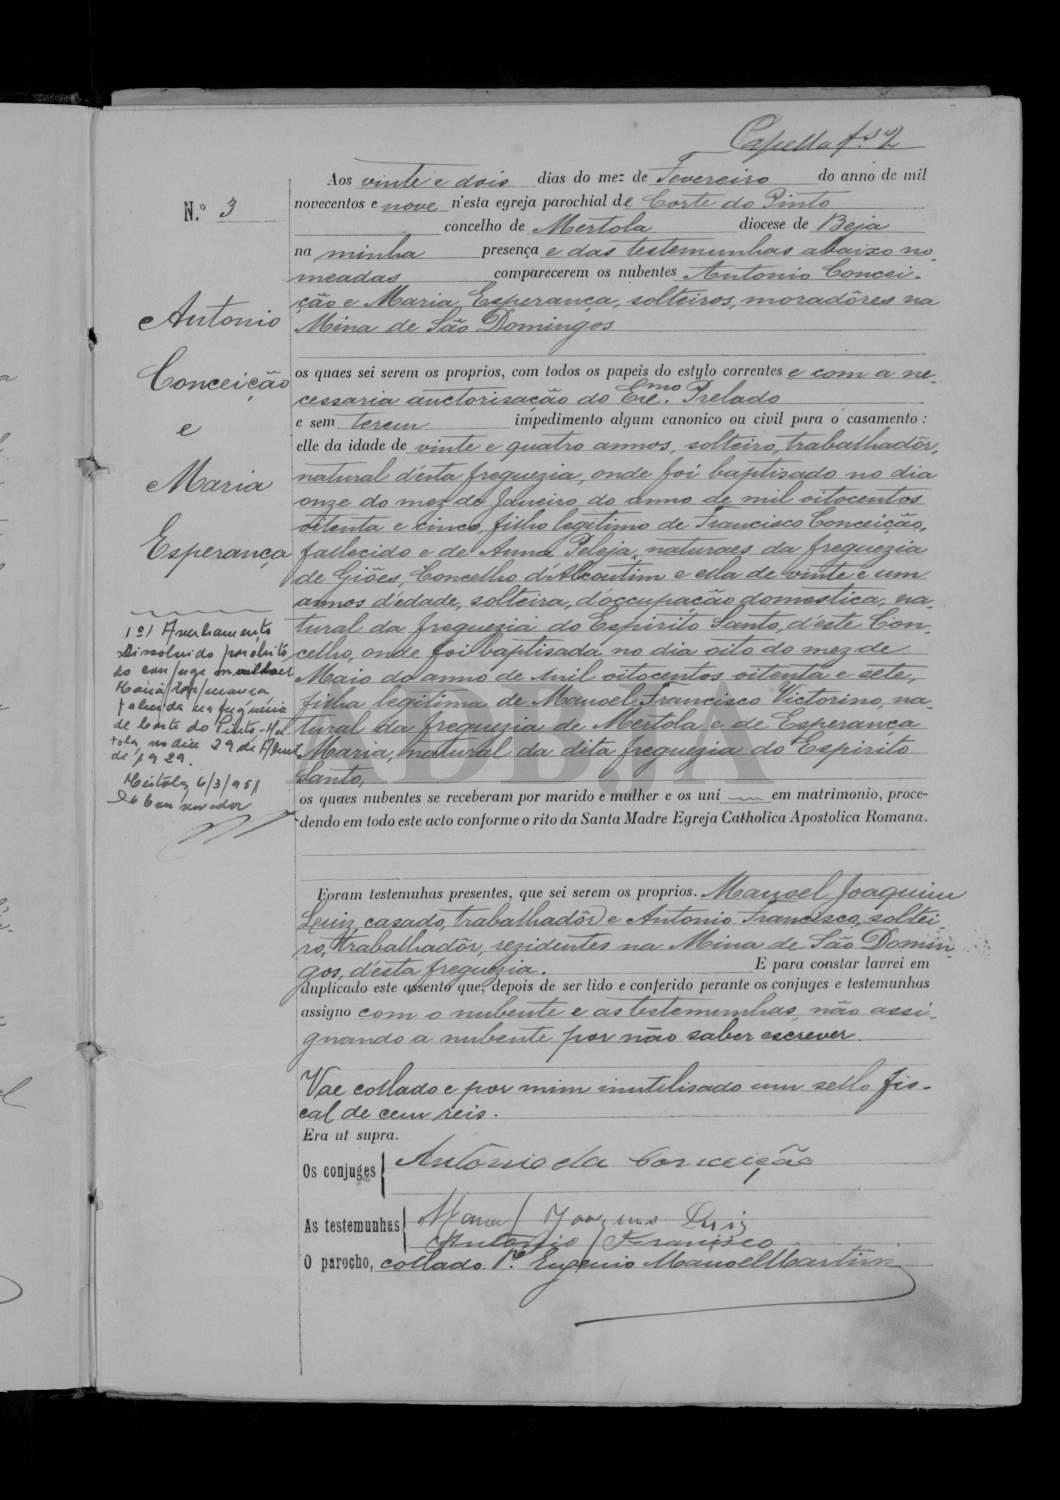 Capella fs 2
N.º 3
Antonio
Conceição
e
Maria
Esperança
1º Averbamento
Dissolvido por óbito
do conjuge mulher
Maria Esperança
falecida na freguesia
de Corte do Pinto - Mer
tola, no dia 29 de
de 1929.
Mertola, 6/3/951
O Conservador
Aos vinte e dois dias do mez de Fevereiro do anno de mil
novecentos e nove n'esta egreja parochial de Corte do Pinto
concelho de Mertola diocese de Beja
na minha presença e das testemunhas abaixo no-
meadas comparecerem os nubentes Antonio Concei-
ção e Maria Esperança, solteiros, moradôres na
Mina de São Domingos
os quaes sei serem os proprios, com todos os papeis do estylo correntes e com a ne-
cessaria auctorisação do Exc.mo Prelado
e sem terem impedimento algum canonico ou civil para o casamento:
elle da idade de vinte e quatro annos, solteiro, trabalhadôr,
natural d'esta freguezia, onde foi baptisado no dia
onze do mez de Janeiro do anno de mil oitocentos
oitenta e cinco, filho legitimo de Francisco Conceição,
fallecido e de Anna Peleja, naturaes da freguezia
de Giões, Concelho d'Alcoutim e ella de vinte e um
annos d'edade, solteira, d'occupação domestica, na-
tural da freguezia do Espirito Santo, d'este Con-
celho, onde foi baptisada no dia oito do mez de
Maio do anno de mil oitocentos oitenta e sete,
filha legitima de Manoel Francisco Victorino, na-
tural da freguezia de Mertola e de Esperança
Maria, natural da dita freguezia do Espirito
Santo,
os quaes nubentes se receberam por marido e mulher e os uni em matrimonio, proce-
dendo em todo este acto conforme o rito da Santa Madre Egreja Catholica Apostolica Romana.
Foram testemuhas presentes, que sei serem os proprios. Manoel Joaquim
Luiz, casado, trabalhadôr e Antonio Francisco, soltei-
ro, trabalhadôr, rezidentes na Mina de São Domin-
gos, d'esta freguezia. E para constar lavrei em
duplicado este assento que, depois de ser lido e conferido perante os conjuges e testemunhas
assigno com o nubente e as testemunhas, não assi-
gnando a nubente por não saber escrever.
Vae collado e por mim inutilisado um sello fis-
cal de cem reis.
Era ut supra.
Os conjuges Antônio da Conceição
As testemunhas Manuel Joaquim Luiz
Antonio Francisco
O parocho, collado P.e Eugenio Manoel Martins
ADBJA